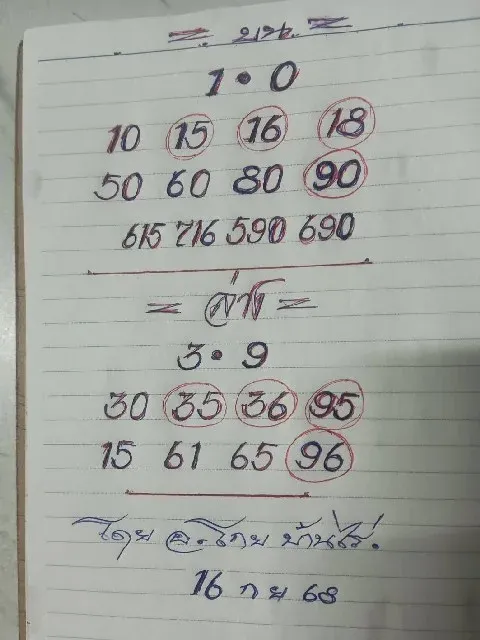 = บน =
1 • 0
10 15 16 18
50 60 80 90
615 716 590 690
= ล่าง =
3 • 9
30 35 36 95
15 61 65 96
โดย อ.โกย บ้านไร่.
16 กย 68